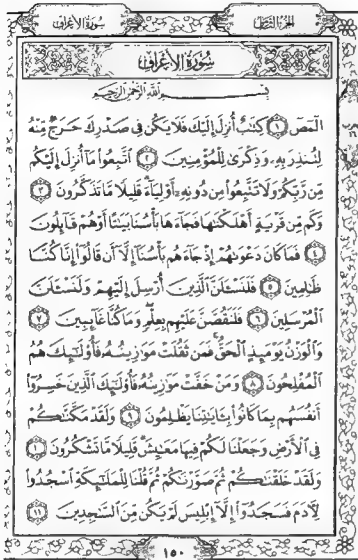 سورة الأعراف
الجزء الثامن
سُورَةُ الأَعْرَافِ
بِسْمِ اللَّهِ الرَّحْمَٰنِ الرَّحِيمِ
الٓمٓصٓ ١ كِتَٰبٌ أُنزِلَ إِلَيْكَ فَلَا يَكُن فِي صَدْرِكَ حَرَجٌ مِّنْهُ
لِتُنذِرَ بِهِۦ وَذِكْرَىٰ لِلْمُؤْمِنِينَ ٢ ٱتَّبِعُوا۟ مَآ أُنزِلَ إِلَيْكُم
مِّن رَّبِّكُمْ وَلَا تَتَّبِعُوا۟ مِن دُونِهِۦٓ أَوْلِيَآءَ قَلِيلًا مَّا تَذَكَّرُونَ ٣
وَكَم مِّن قَرْيَةٍ أَهْلَكْنَٰهَا فَجَآءَهَا بَأْسُنَا بَيَٰتًا أَوْ هُمْ قَآئِلُونَ
٤ فَمَا كَانَ دَعْوَىٰهُمْ إِذْ جَآءَهُم بَأْسُنَآ إِلَّآ أَن قَالُوٓا۟ إِنَّا كُنَّا
ظَٰلِمِينَ ٥ فَلَنَسْـَٔلَنَّ ٱلَّذِينَ أُرْسِلَ إِلَيْهِمْ وَلَنَسْـَٔلَنَّ
ٱلْمُرْسَلِينَ ٦ فَلَنَقُصَّنَّ عَلَيْهِم بِعِلْمٍ وَمَا كُنَّا غَآئِبِينَ ٧
وَٱلْوَزْنُ يَوْمَئِذٍ ٱلْحَقُّ فَمَن ثَقُلَتْ مَوَٰزِينُهُۥ فَأُو۟لَٰٓئِكَ هُمُ
ٱلْمُفْلِحُونَ ٨ وَمَنْ خَفَّتْ مَوَٰزِينُهُۥ فَأُو۟لَٰٓئِكَ ٱلَّذِينَ خَسِرُوٓا۟
أَنفُسَهُم بِمَا كَانُوا۟ بِـَٔايَٰتِنَا يَظْلِمُونَ ٩ وَلَقَدْ مَكَّنَّٰكُمْ
فِي ٱلْأَرْضِ وَجَعَلْنَا لَكُمْ فِيهَا مَعَٰيِشَ قَلِيلًا مَّا تَشْكُرُونَ ١٠
وَلَقَدْ خَلَقْنَٰكُمْ ثُمَّ صَوَّرْنَٰكُمْ ثُمَّ قُلْنَا لِلْمَلَٰٓئِكَةِ ٱسْجُدُوا۟
لِـَٔادَمَ فَسَجَدُوٓا۟ إِلَّآ إِبْلِيسَ لَمْ يَكُن مِّنَ ٱلسَّٰجِدِينَ ١١
١٥٠